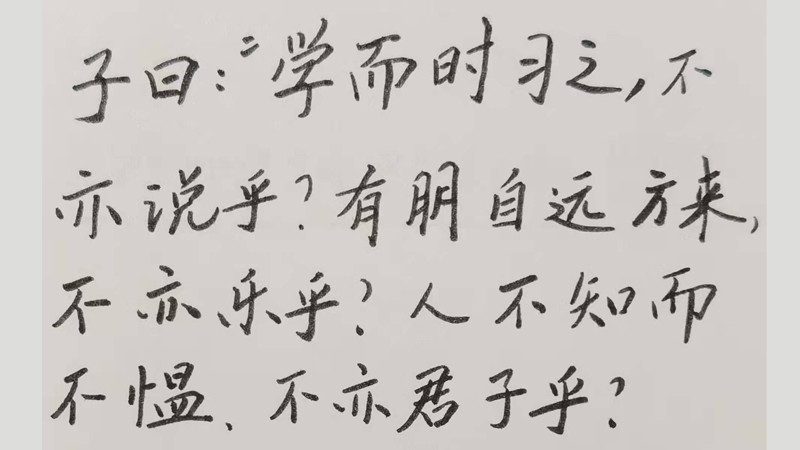 子曰:“学而时习之,不
亦说乎?有朋自远方来,
不亦乐乎?人不知而
不愠、不亦君子乎?